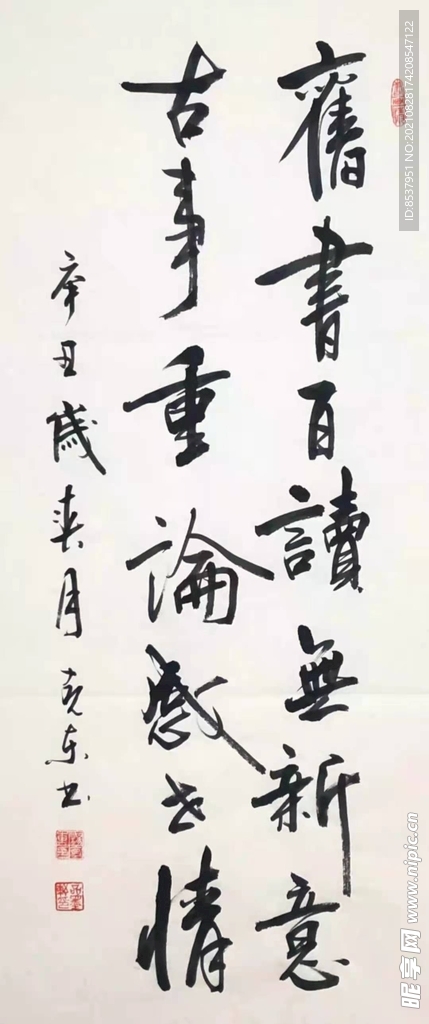 舊書百讀無新意
古事重論感世情
辛丑歲春月克東书
ID:8537951 NO:20210828174208547122
昵享网 www.nipic.cn